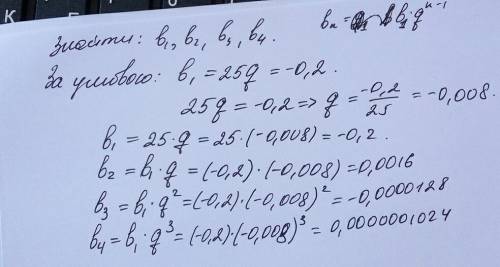 Знайти: b₁, b₂, b₃, b₄. bₙ = b₁·q^(n-1)
За умовою: b₁ = 25q = -0,2.
25q = -0,2 => q = -0,2/25 = -0,008.
b₁ = 25·q = 25·(-0,008) = -0,2.
b₂ = b₁·q = (-0,2)·(-0,008) = 0,0016
b₃ = b₁·q² = (-0,2)·(-0,008)² = -0,0000128
b₄ = b₁·q³ = (-0,2)·(-0,008)³ = 0,0000001024